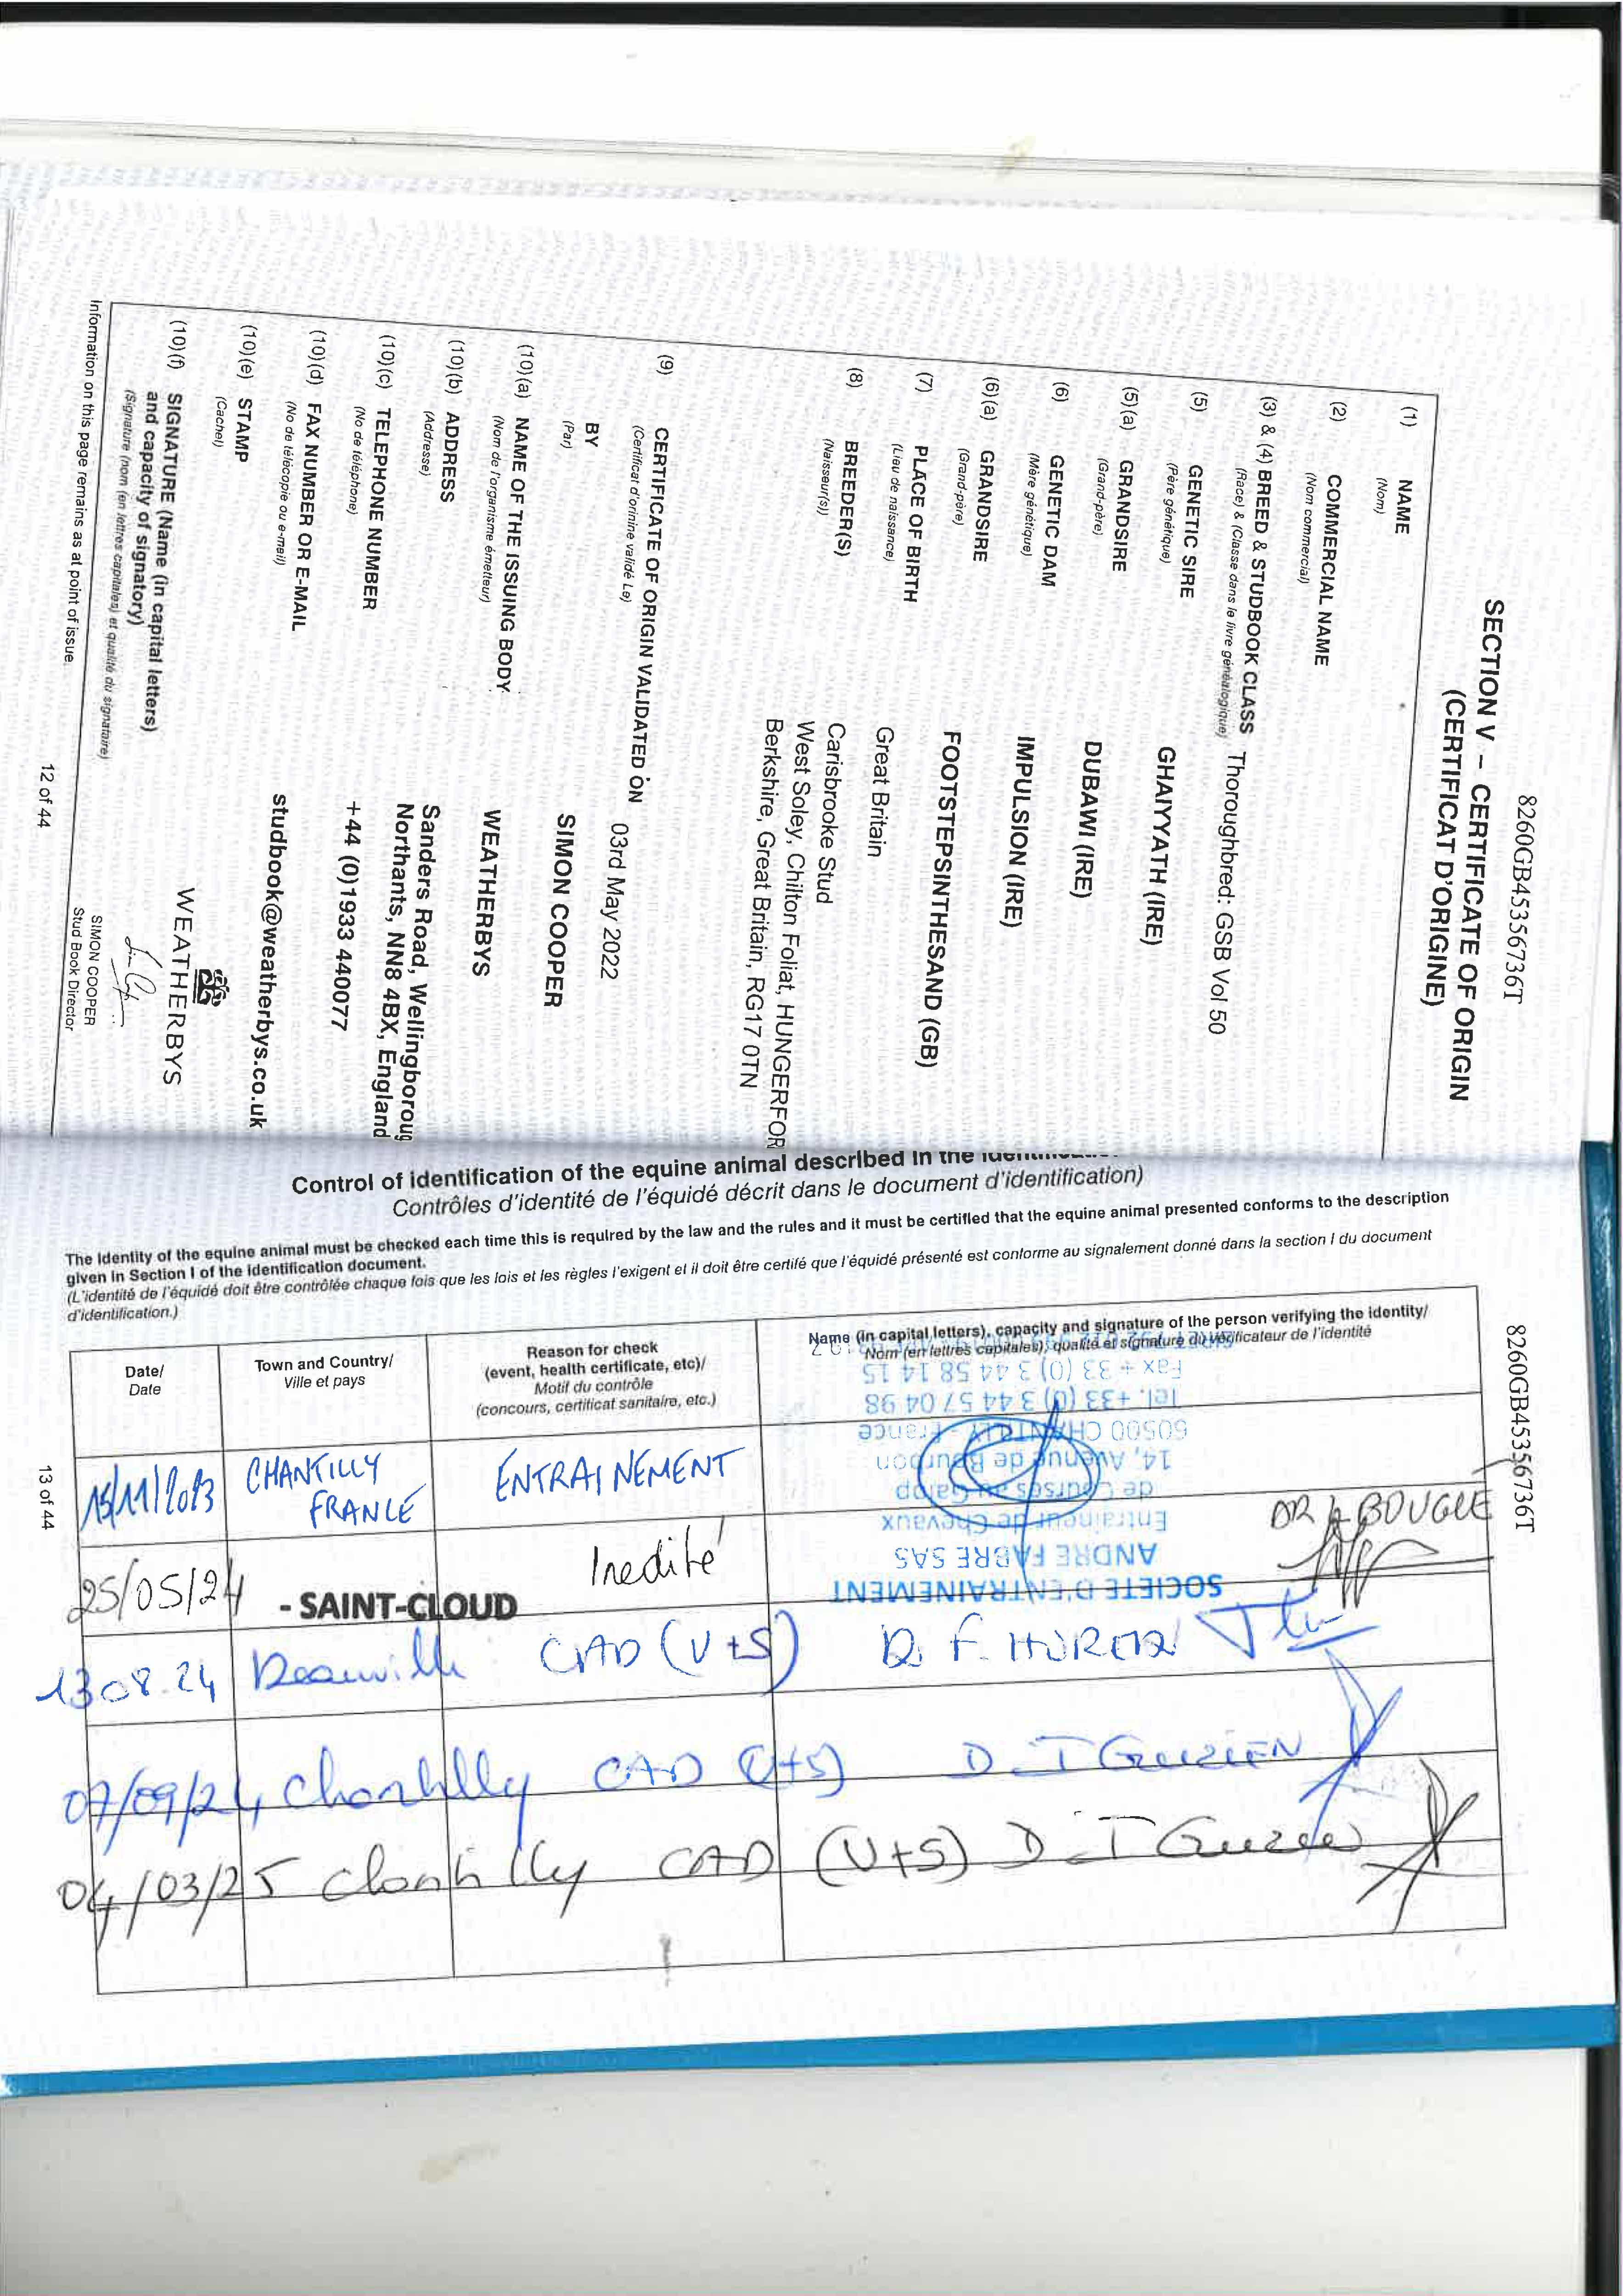 8260GB45356736T
SECTION V – CERTIFICATE OF ORIGIN
(CERTIFICAT D'ORIGINE)
(1) NAME
(Nom)
(2) COMMERCIAL NAME
(Nom commercial)
(3) & (4) BREED & STUDBOOK CLASS Thoroughbred: GSB Vol 50
(Race) & (Classe dans le livre généalogique)
(5) GENETIC SIRE GHAIYYATH (IRE)
(Père génétique)
(5)(a) GRANDSIRE DUBAWI (IRE)
(Grand-père)
(6) GENETIC DAM IMPULSION (IRE)
(Mère génétique)
(6)(a) GRANDSIRE FOOTSTEPSINTHESAND (GB)
(Grand-père)
(7) PLACE OF BIRTH Great Britain
(Lieu de naissance)
(8) BREEDER(S) Carisbrooke Stud
(Naisseur(s)) West Soley, Chilton Foliat, HUNGERFOR
Berkshire, Great Britain, RG17 0TN
(9) CERTIFICATE OF ORIGIN VALIDATED ON 03rd May 2022
(Certificat d'orinine validé Le)
BY SIMON COOPER
(Par)
(10)(a) NAME OF THE ISSUING BODY WEATHERBYS
(Nom de l'organisme émetteur)
(10)(b) ADDRESS Sanders Road, Wellingboroug
(Addresse) Northants, NN8 4BX, England
(10)(c) TELEPHONE NUMBER +44 (0)1933 440077
(No de téléphone)
(10)(d) FAX NUMBER OR E-MAIL studbook@weatherbys.co.uk
(No de télécopie ou e-mail)
(10)(e) STAMP
(Cachet)
WEATHERBYS
(10)(f) SIGNATURE (Name (in capital letters)
and capacity of signatory)
(Signature (nom (en lettres capitales) et qualité du signataire)
SIMON COOPER
Stud Book Director
Information on this page remains as at point of issue.
12 of 44
Control of identification of the equine animal described in the
Contrôles d'identité de l'équidé décrit dans le document d'identification)
The identity of the equine animal must be checked each time this is required by the law and the rules and it must be certified that the equine animal presented conforms to the description
given in Section I of the identification document.
(L'identité de l'équidé doit être contrôlée chaque fois que les lois et les règles l'exigent et il doit être certifé que l'équidé présenté est conforme au signalement donné dans la section I du document
d'identification.)
8260GB45356736T
Date/
Date
Town and Country/
Ville et pays
Reason for check
(event, health certificate, etc)/
Motif du contrôle
(concours, certificat sanitaire, etc.)
Name (in capital letters), capacity and signature of the person verifying the identity/
Nom (en lettres capitales), qualité et signature du vérificateur de l'identité
15/11/2023 CHANTILLY FRANCE ENTRAINEMENT
SOCIETE D'ENTRAINEMENT
ANDRE FABRE SAS
Entraineur de Chevaux
de Courses au Galop
14, Avenue de Bourbon
60500 CHANTILLY - France
Tel. +33 (0) 3 44 57 04 98
Fax + 33 (0) 3 44 58 14 15
25/05/24 - SAINT-CLOUD Inedité DR BOUGUE
13 08.24 Deauville CAD (V+S)
07/09/24 Chantilly CAD (V+S)
04/03/25 Chantilly CAD (V+S)
13 of 44